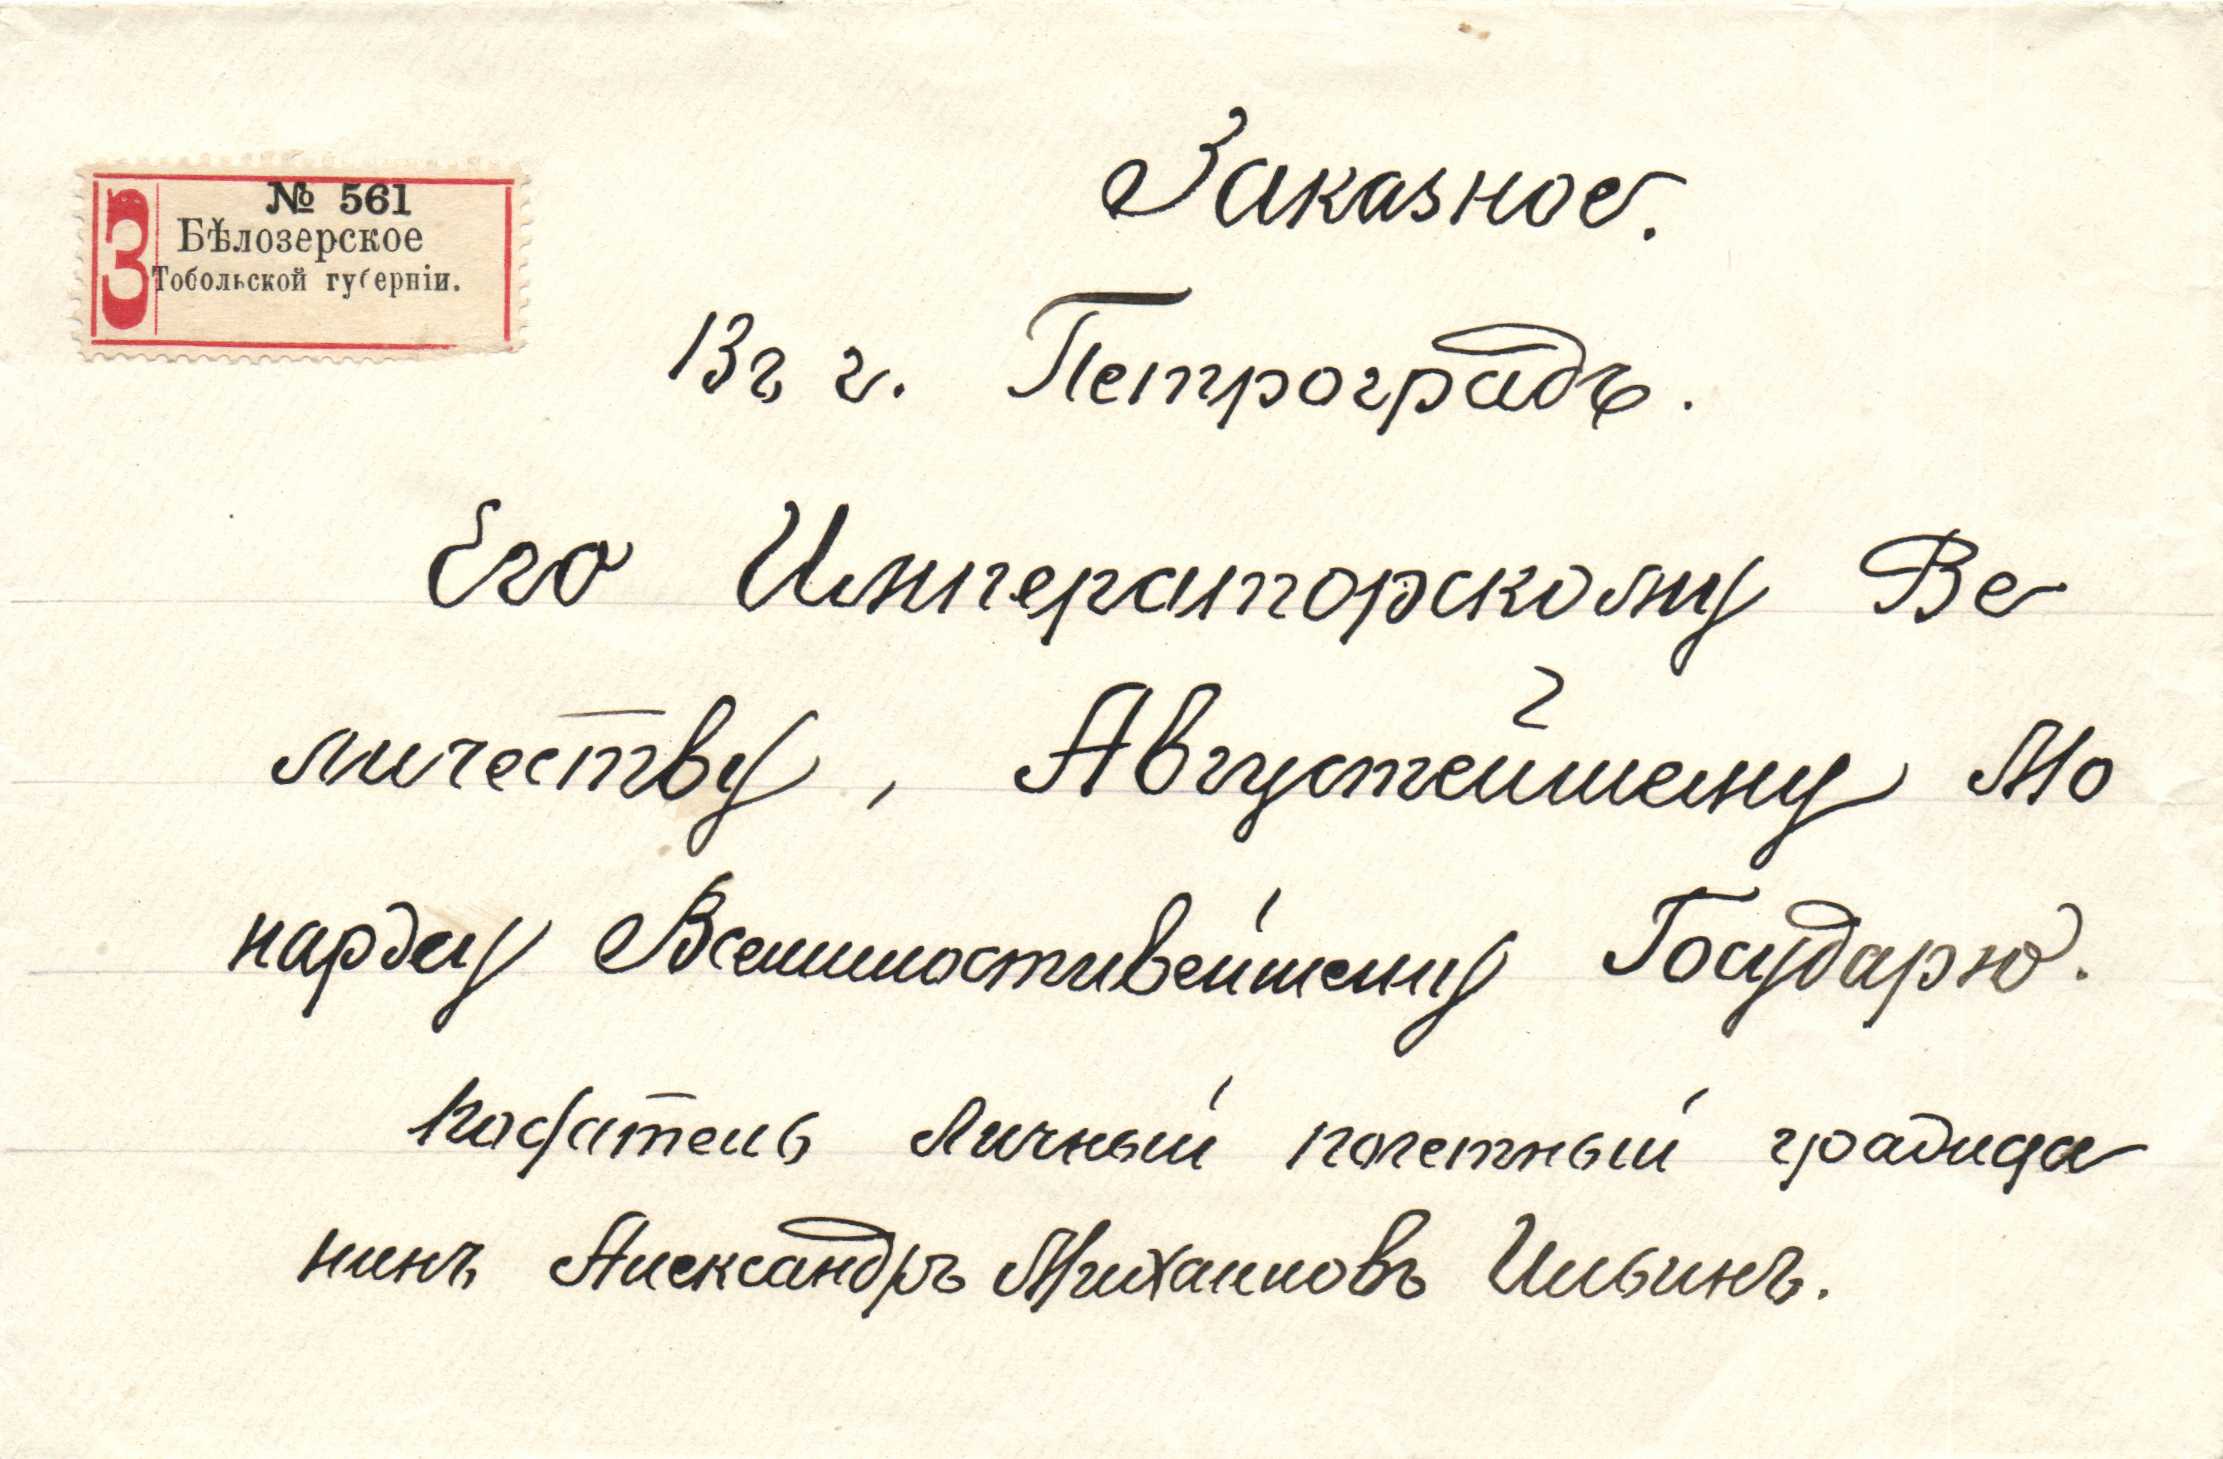 З
№ 561
Бѣлозерское
Тобольской губерніи.
Заказное.
Въ г. Петроградъ.
Его Императорскому Ве
личеству, Августейшему Мо
нарху Всемилостивейшему Государю.
Податель личный почетный гражда
нинъ Александръ Михаиловъ Ильинъ.